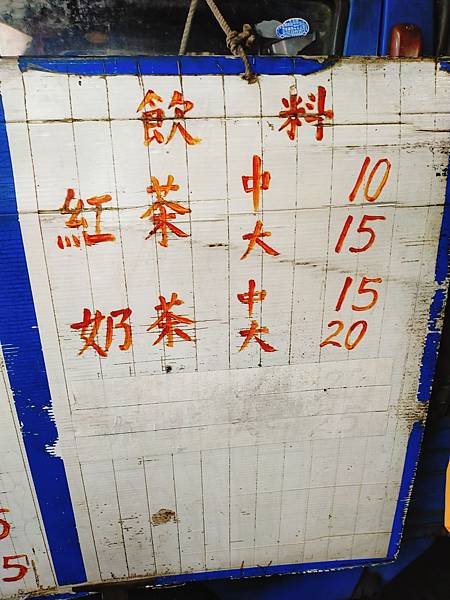 飲料
紅茶 中 10
大 15
奶茶 中 15
大 20
5